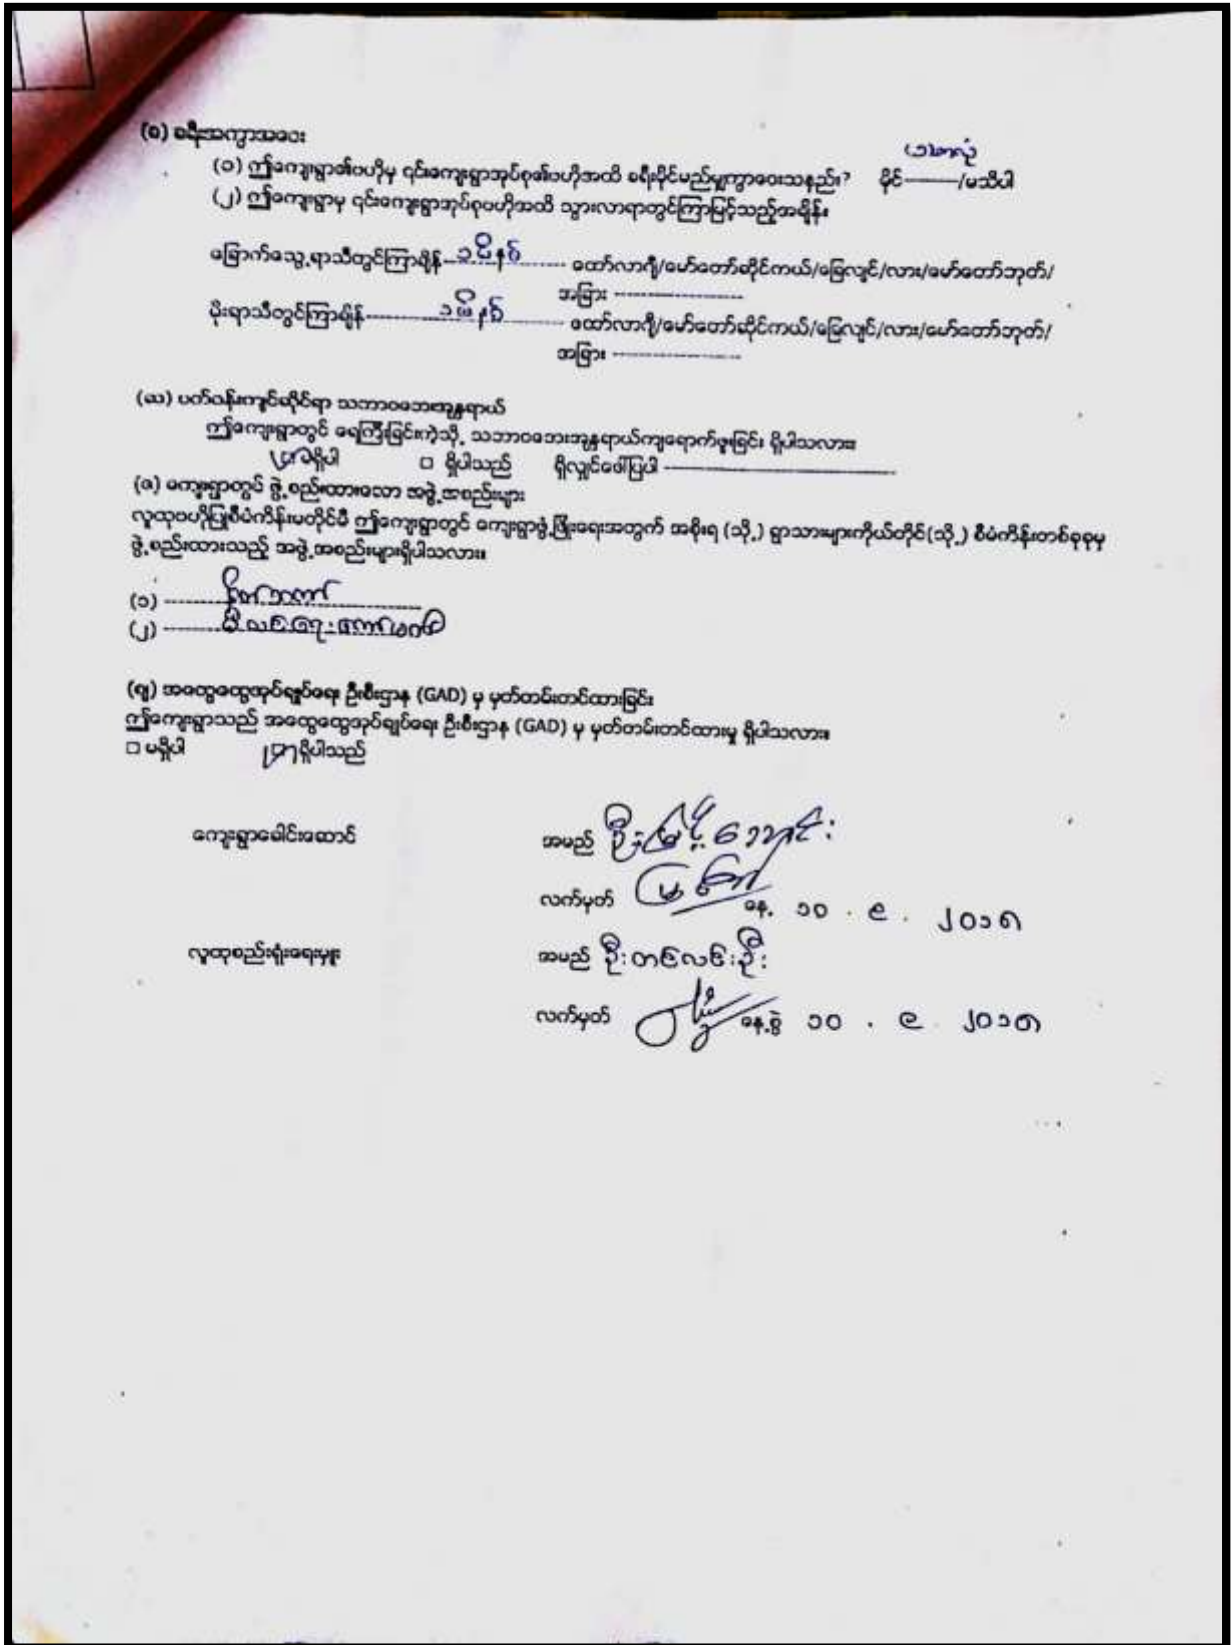 (စ) ခရီးအကွာအဝေး
(၁) ဤကျေးရွာ၏ဗဟိုမှ ၎င်းကျေးရွာအုပ်စု၏ဗဟိုအထိ ခရီးမိုင်မည်မျှကွာဝေးသနည်း? မိုင်---------/မသိပါ
(၂) ဤကျေးရွာမှ ၎င်းကျေးရွာအုပ်စုဗဟိုအထိ သွားလာရာတွင်ကြာမြင့်သည့်အချိန်။
ခြောက်သွေ့ရာသီတွင်ကြာချိန် ၁ မိနစ် ထော်လာဂျီ/မော်တော်ဆိုင်ကယ်/ခြေလျင်/လား/မော်တော်ဘုတ်/
အခြား --------------------
မိုးရာသီတွင်ကြာချိန် ၁ မိနစ် ထော်လာဂျီ/မော်တော်ဆိုင်ကယ်/ခြေလျင်/လား/မော်တော်ဘုတ်/
အခြား --------------------
(ဆ) ပတ်ဝန်းကျင်ဆိုင်ရာ သဘာဝဘေးအန္တရာယ်
ဤကျေးရွာတွင် ရေကြီးခြင်းကဲ့သို့ သဘာဝဘေးအန္တရာယ်ကျရောက်ဖူးခြင်း ရှိပါသလား။
မရှိပါ □ ရှိပါသည် ရှိလျှင်ဖေါ်ပြပါ --------------------
(ဇ) ကျေးရွာတွင် ဖွဲ့စည်းထားသော အဖွဲ့အစည်းများ
လူထုဗဟိုပြုစီမံကိန်းမတိုင်မီ ဤကျေးရွာတွင် ကျေးရွာဖွံ့ဖြိုးရေးအတွက် အစိုးရ (သို့) ရွာသားများကိုယ်တိုင်(သို့) စီမံကိန်းတစ်ခုခုမှ
ဖွဲ့စည်းထားသည့် အဖွဲ့အစည်းများရှိပါသလား။
(၁)
(၂) မီးလင်းရေးကော်မတီ
(ဈ) အထွေထွေအုပ်ချုပ်ရေး ဦးစီးဌာန (GAD) မှ မှတ်တမ်းတင်ထားခြင်း
ဤကျေးရွာသည် အထွေထွေအုပ်ချုပ်ရေး ဦးစီးဌာန (GAD) မှ မှတ်တမ်းတင်ထားမှု ရှိပါသလား။
□ မရှိပါ ရှိပါသည်
ကျေးရွာခေါင်းဆောင် အမည် ဦးမြင့်အောင်
လက်မှတ် နေ့ ၁၀ . ၉ . ၂၀၁၈
လူထုစည်းရုံးရေးမှူး အမည် ဦးတင်လင်းဦး
လက်မှတ် နေ့စွဲ ၁၀ . ၉ . ၂၀၁၈